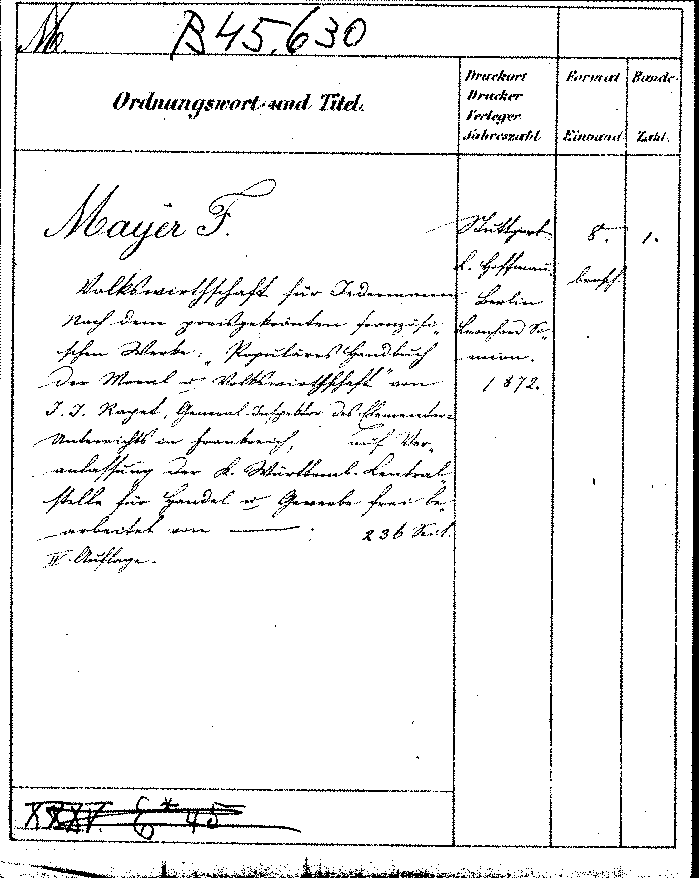 M. B 45,630
Ordnungswort und Titel.
Druckort
Drucker
Verleger
Jahreszahl
Format
Einband
Bände-
Zahl.
Mayer F.
Volkswirthschaft für Jedermann
Nach dem preisgekrönten französi-
schen Werke: "Populäres Handbuch
der Moral u Volkswirthschaft" von
J. J. Rapet, General-Inspektor des Elementar-
Unterrichts in Frankreich, auf Ver-
anlassung der K. Württemb. Central-
stelle für Handel u Gewerbe frei be-
arbeitet von —— . 236 Seit.
IV. Auflage.
Stuttgart
Hoffmann
Berlin
Leonhard Si-
mion.
1872.
8.
brosch.
1.
XXXV. 6* 45